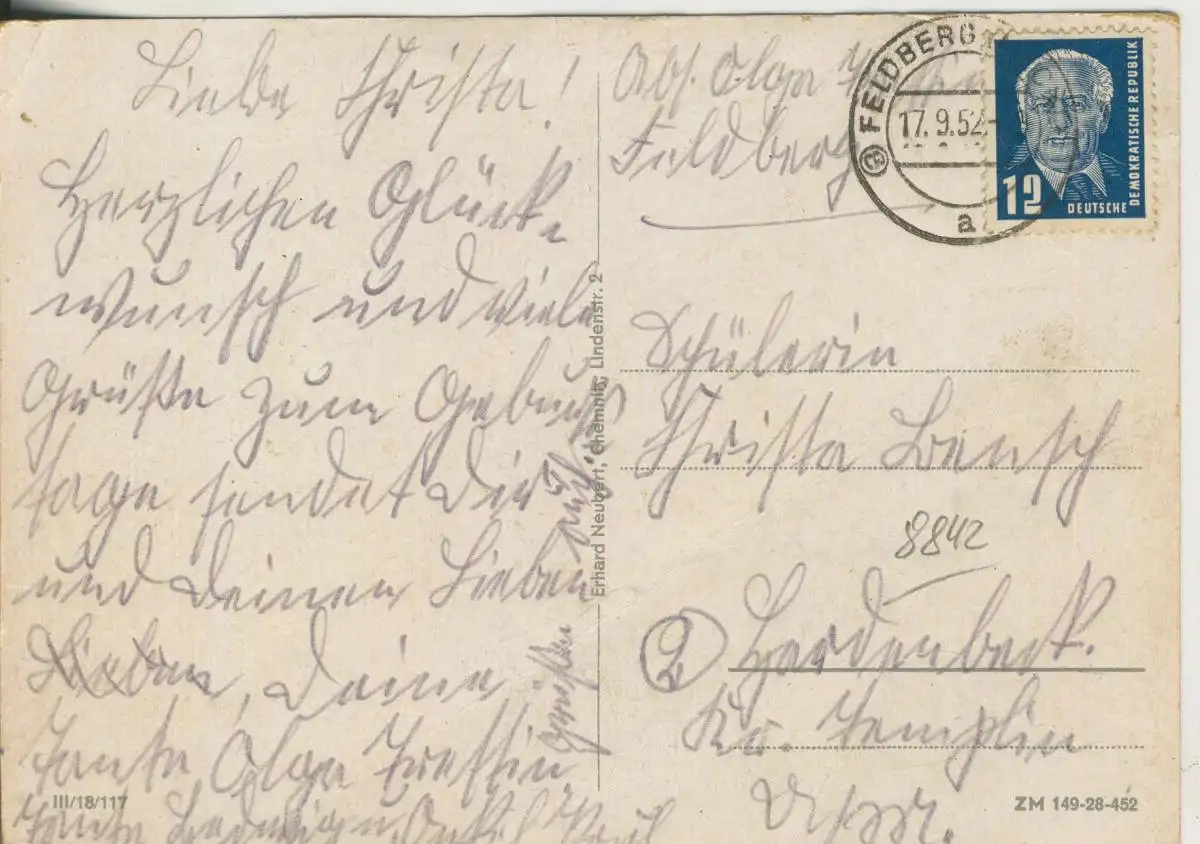 Liebe Christa!
Herzlichen Glück-
wunsch und viele
Grüße zum Geburts
tage sendet Dir
und Deinen Lieben
Deine
Tante Olga
Tante Hedwig u. Onkel Paul
Abs. Olga
Feldberg
FELDBERG
17.9.52
a
12
DEUTSCHE
DEMOKRATISCHE REPUBLIK
Erhard Neubert, Chemnitz, Lindenstr. 2
Schülerin
Christa Bensch
8842
2
Kr. Templin
III/18/117
ZM 149-28-452